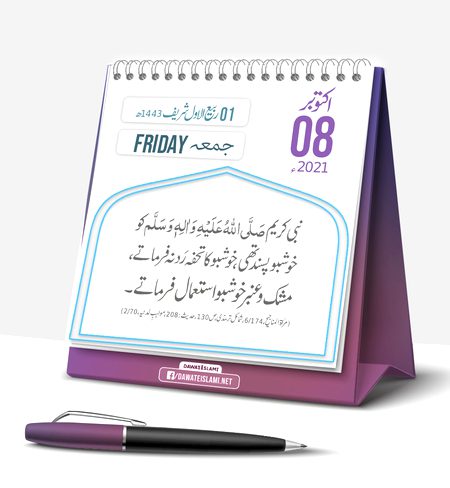 01 ربیع الاول شریف 1443ھ
جمعہ FRIDAY
اکتوبر
08
2021ء
نبی کریم صَلَّی اللہُ عَلَیْہِ وَاٰلِہٖ وَسَلَّم کو
خوشبو پسند تھی، خوشبو کا تحفہ رَد نہ فرماتے،
مشک و عنبر خوشبو استعمال فرماتے۔
(مراۃ المناجیح، 6/174، شمائل ترمذی، ص130، حدیث:208، مواہب لدنیہ، 2/70)
DAWATEISLAMI
f/DAWATEISLAMI.NET